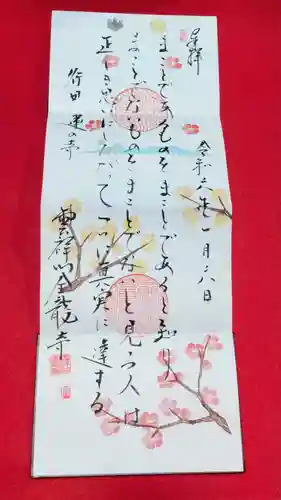 奉拝
令和六年一月二八日
まことであるものをまことであると知り
まことでないものをまことでないと見る人は
正しき思いにしたがって ついに真実に達する
行田 蓮の寺
雲祥山金龍寺